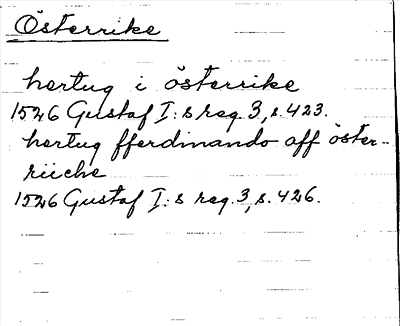 Österrike
hertug i österrike
1526 Gustaf I:s reg. 3, s. 423.
hertug fferdinando aff öster-
riiche
1526 Gustaf I:s reg. 3, s. 426.